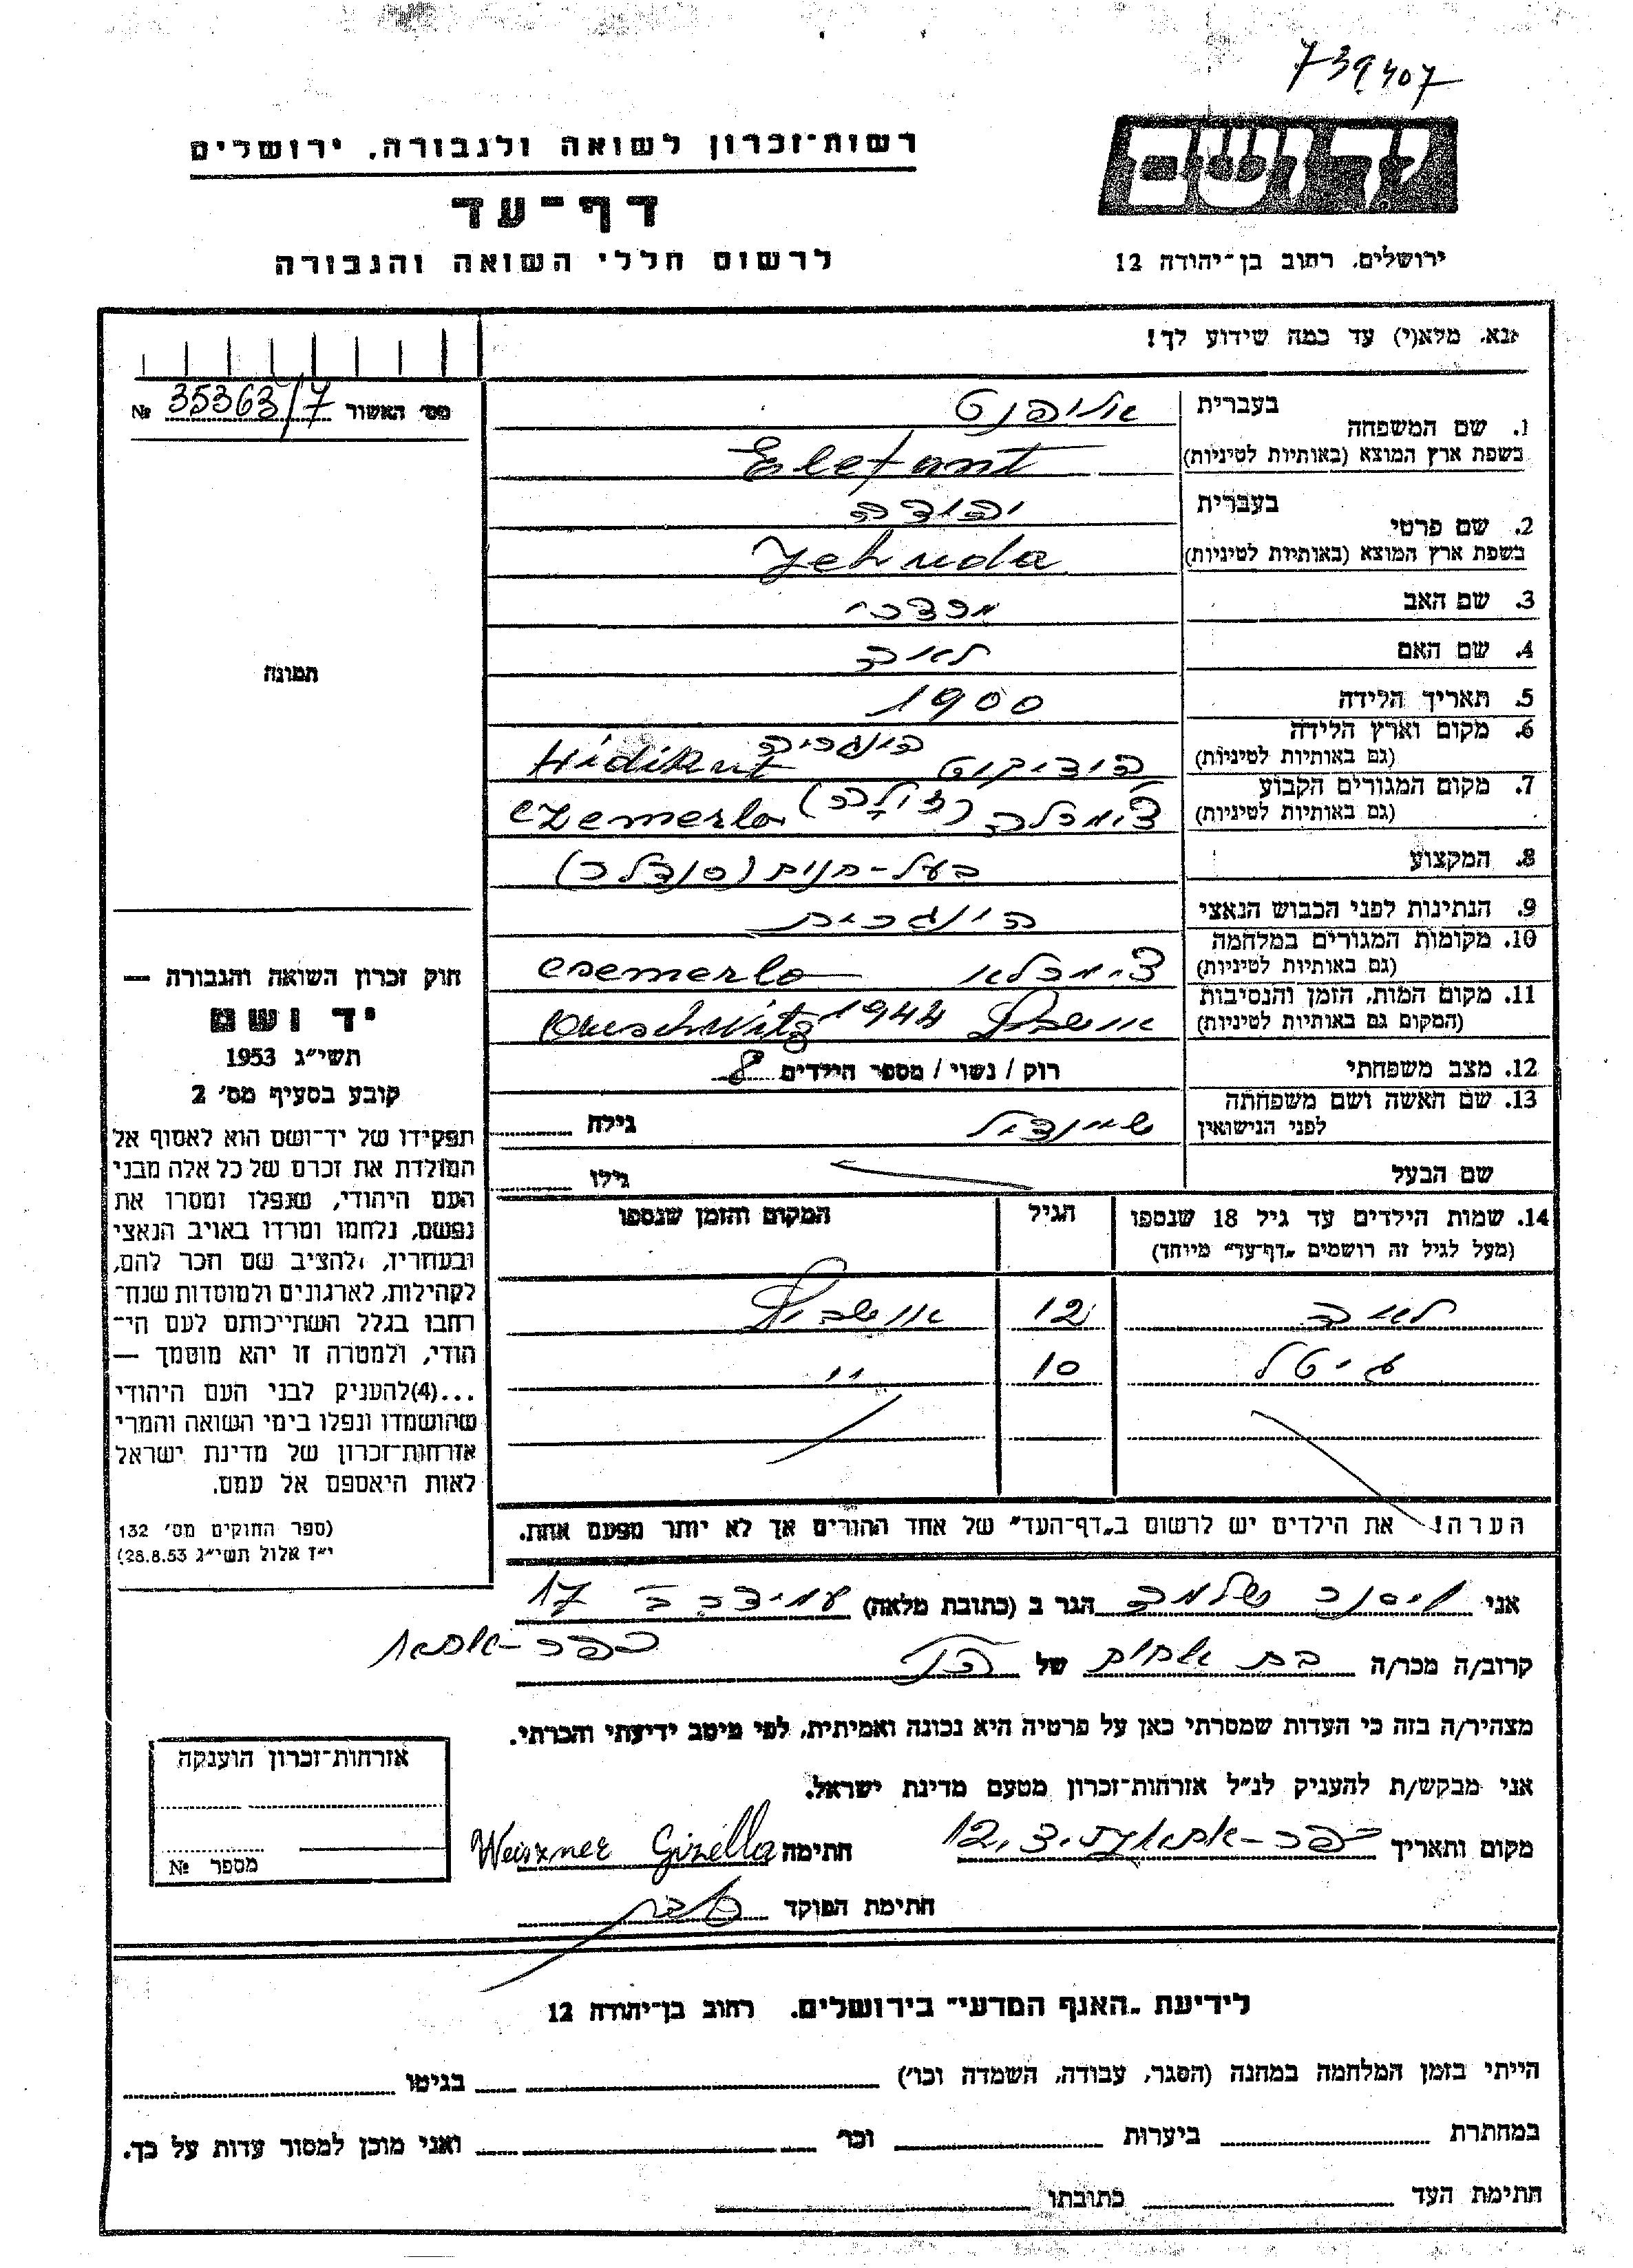 739407
רשות־זכרון לשואה ולגבורה, ירושלים
יד ושם
דף־עד
לרשום חללי השואה והגבורה
ירושלים, רחוב בן־יהודה 12
אנא, מלא(י) עד כמה שידוע לך!
מס׳ האשור 35363/7 №
1. שם המשפחה
בעברית אליפנט
בשפת ארץ המוצא (באותיות לטיניות) Elefant
2. שם פרטי
בעברית יהודה
בשפת ארץ המוצא (באותיות לטיניות) Jehuda
3. שם האב מרדכי
4. שם האם לאה
5. תאריך הלידה 1900
6. מקום וארץ הלידה הונגריה
(גם באותיות לטיניות) הידיקוט Hidikut
7. מקום המגורים הקבוע
(גם באותיות לטיניות) צ'ימרלה Czemerlo
8. המקצוע בעל-חנות (סנדלר)
9. הנתינות לפני הכבוש הנאצי הונגרית
10. מקומות המגורים במלחמה
(גם באותיות לטיניות) צ'ימרלא Csemerlo
11. מקום המות, הזמן והנסיבות
(המקום גם באותיות לטיניות) אושביץ 1944 Auschwitz
12. מצב משפחתי רוק / נשוי / מספר הילדים 8
13. שם האשה ושם משפחתה
לפני הנישואין שיינדיל גילה
שם הבעל גילו
תמונה
חוק זכרון השואה והגבורה —
יד ושם
תשי״ג 1953
קובע בסעיף מס׳ 2
תפקידו של יד־ושם הוא לאסוף אל
המולדת את זכרם של כל אלה מבני
העם היהודי, שנפלו ומסרו את
נפשם, נלחמו ומרדו באויב הנאצי
ובעוזריו, ולהציב שם וזכר להם,
לקהילות, לארגונים ולמוסדות שנח־
רחבו בגלל השתייכותם לעם הי־
הודי, ולמטרה זו יהא מוסמך —
...(4)להעניק לבני העם היהודי
שהושמדו ונפלו בימי השואה והמרי
אזרחות־זכרון של מדינת ישראל
לאות היאספם אל עמם.
(ספר החוקים מס׳ 132
י״ז אלול תשי״ג 28.8.53)
14. שמות הילדים עד גיל 18 שנספו הגיל המקום והזמן שנספו
(מעל לגיל זה רושמים „דף־עד״ מיוחד)
לאה 12 אושביץ
גיטל 10 "
הערה! את הילדים יש לרשום ב„דף־העד״ של אחד ההורים אך לא יותר מפעם אחת.
אני ויסנר שלמה הגר ב (כתובת מלאה) עמידר ב 17
כפר-אתא
קרוב/ה מכר/ה בת אחים של הנ"ל
מצהיר/ה בזה כי העדות שמסרתי כאן על פרטיה היא נכונה ואמיתית, לפי מיטב ידיעתי והכרתי.
אני מבקש/ת להעניק לנ״ל אזרחות־זכרון מטעם מדינת ישראל.
מקום ותאריך כפר-אתא חתימה Weiszner Gizella
חתימת הפוקד
אזרחות־זכרון הוענקה
מספר №
לידיעת „האגף המדעי״ בירושלים. רחוב בן־יהודה 12
הייתי בזמן המלחמה במחנה (הסגר, עבודה, השמדה וכו׳) בגיטו
במחתרת ביערות וכו׳ ואני מוכן למסור עדות על כך.
חתימת העד כתובתו